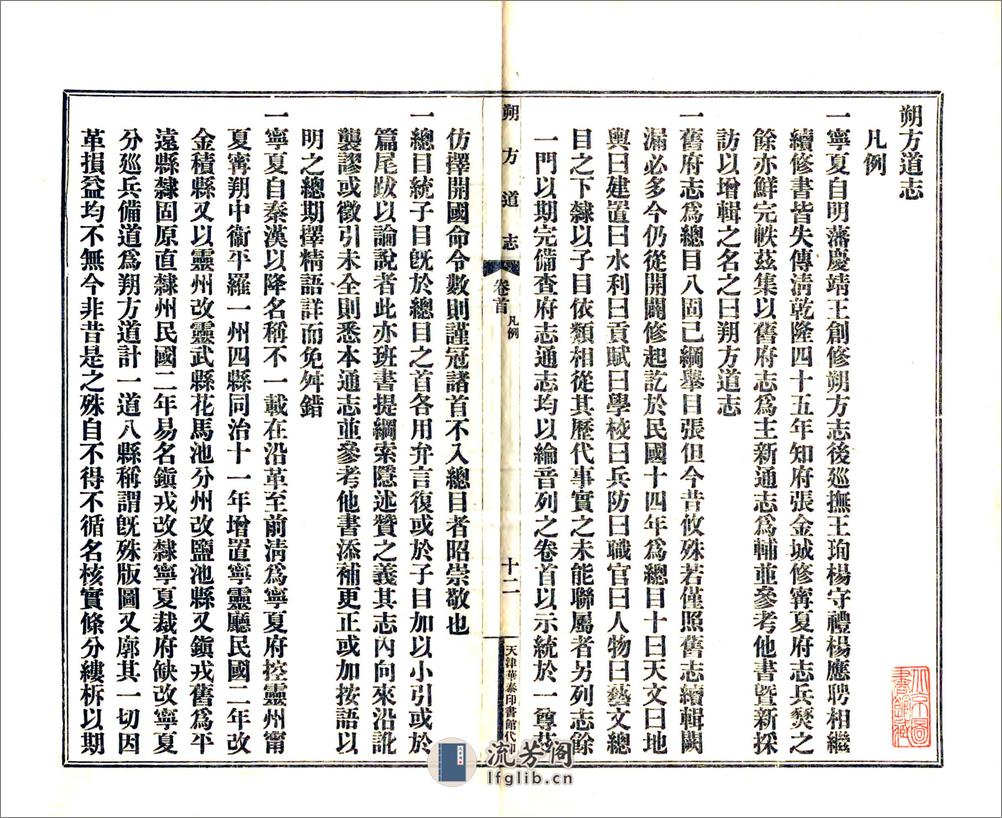 朔方道志
凡例
一寧夏自明藩慶靖王創修朔方志後巡撫王珣楊守禮楊應聘相繼
續修書皆失傳清乾隆四十五年知府張金城修寧夏府志兵燹之
餘亦鮮完帙茲集以舊府志爲主新通志爲輔並參考他書暨新採
訪以增輯之名之曰朔方道志
一舊府志爲總目八固已綱舉目張但今昔攸殊若僅照舊志續輯闕
漏必多今仍從開闢修起訖於民國十四年爲總目十曰天文曰地
輿曰建置曰水利曰貢賦曰學校曰兵防曰職官曰人物曰藝文總
目之下隸以子目依類相從其歷代事實之未能聯屬者另列志餘
一門以期完備查府志通志均以綸音列之卷首以示統於一尊茲
朔方道志
卷首
凡例
十二
天津華泰印書館代印
仿擇開國命令數則謹冠諸首不入總目者昭崇敬也
一總目統子目既於總目之首各用弁言復或於子目加以小引或於
篇尾跋以論說者此亦班書提綱索隱述贊之義其志內向來沿訛
襲謬或徵引未全則悉本通志並參考他書添補更正或加按語以
明之總期擇精語詳而免舛錯
一寧夏自秦漢以降名稱不一載在沿革至前清爲寧夏府控靈州甯
夏甯朔中衛平羅一州四縣同治十一年增置寧靈廳民國二年改
金積縣又以靈州改靈武縣花馬池分州改鹽池縣又鎮戎舊爲平
遠縣隸固原直隸州民國二年易名鎮戎改隸寧夏裁府缺改寧夏
分巡兵備道爲朔方道計一道八縣稱謂既殊版圖又廓其一切因
革損益均不無今非昔是之殊自不得不循名核實條分縷析以期
流芳阁
lfglib.cn